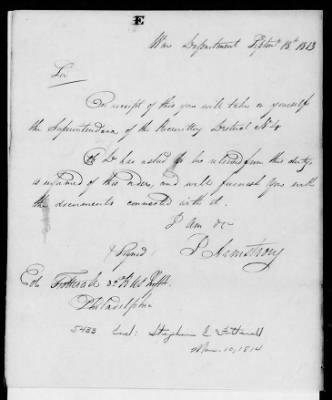 E
War Department Septem 18th 1813
Sir
On receipt of this you will take on yourself
the Superintendence of the Recruiting District No 4.
has asked to be relieved from this duty
is informed of this order, and will furnish you with
the documents connected with it.
I am &c
(Signed) J Armstrong
Col 32d US Infy
Philadelphia
5433 Encl: Stephen E
Mar. 10, 1814